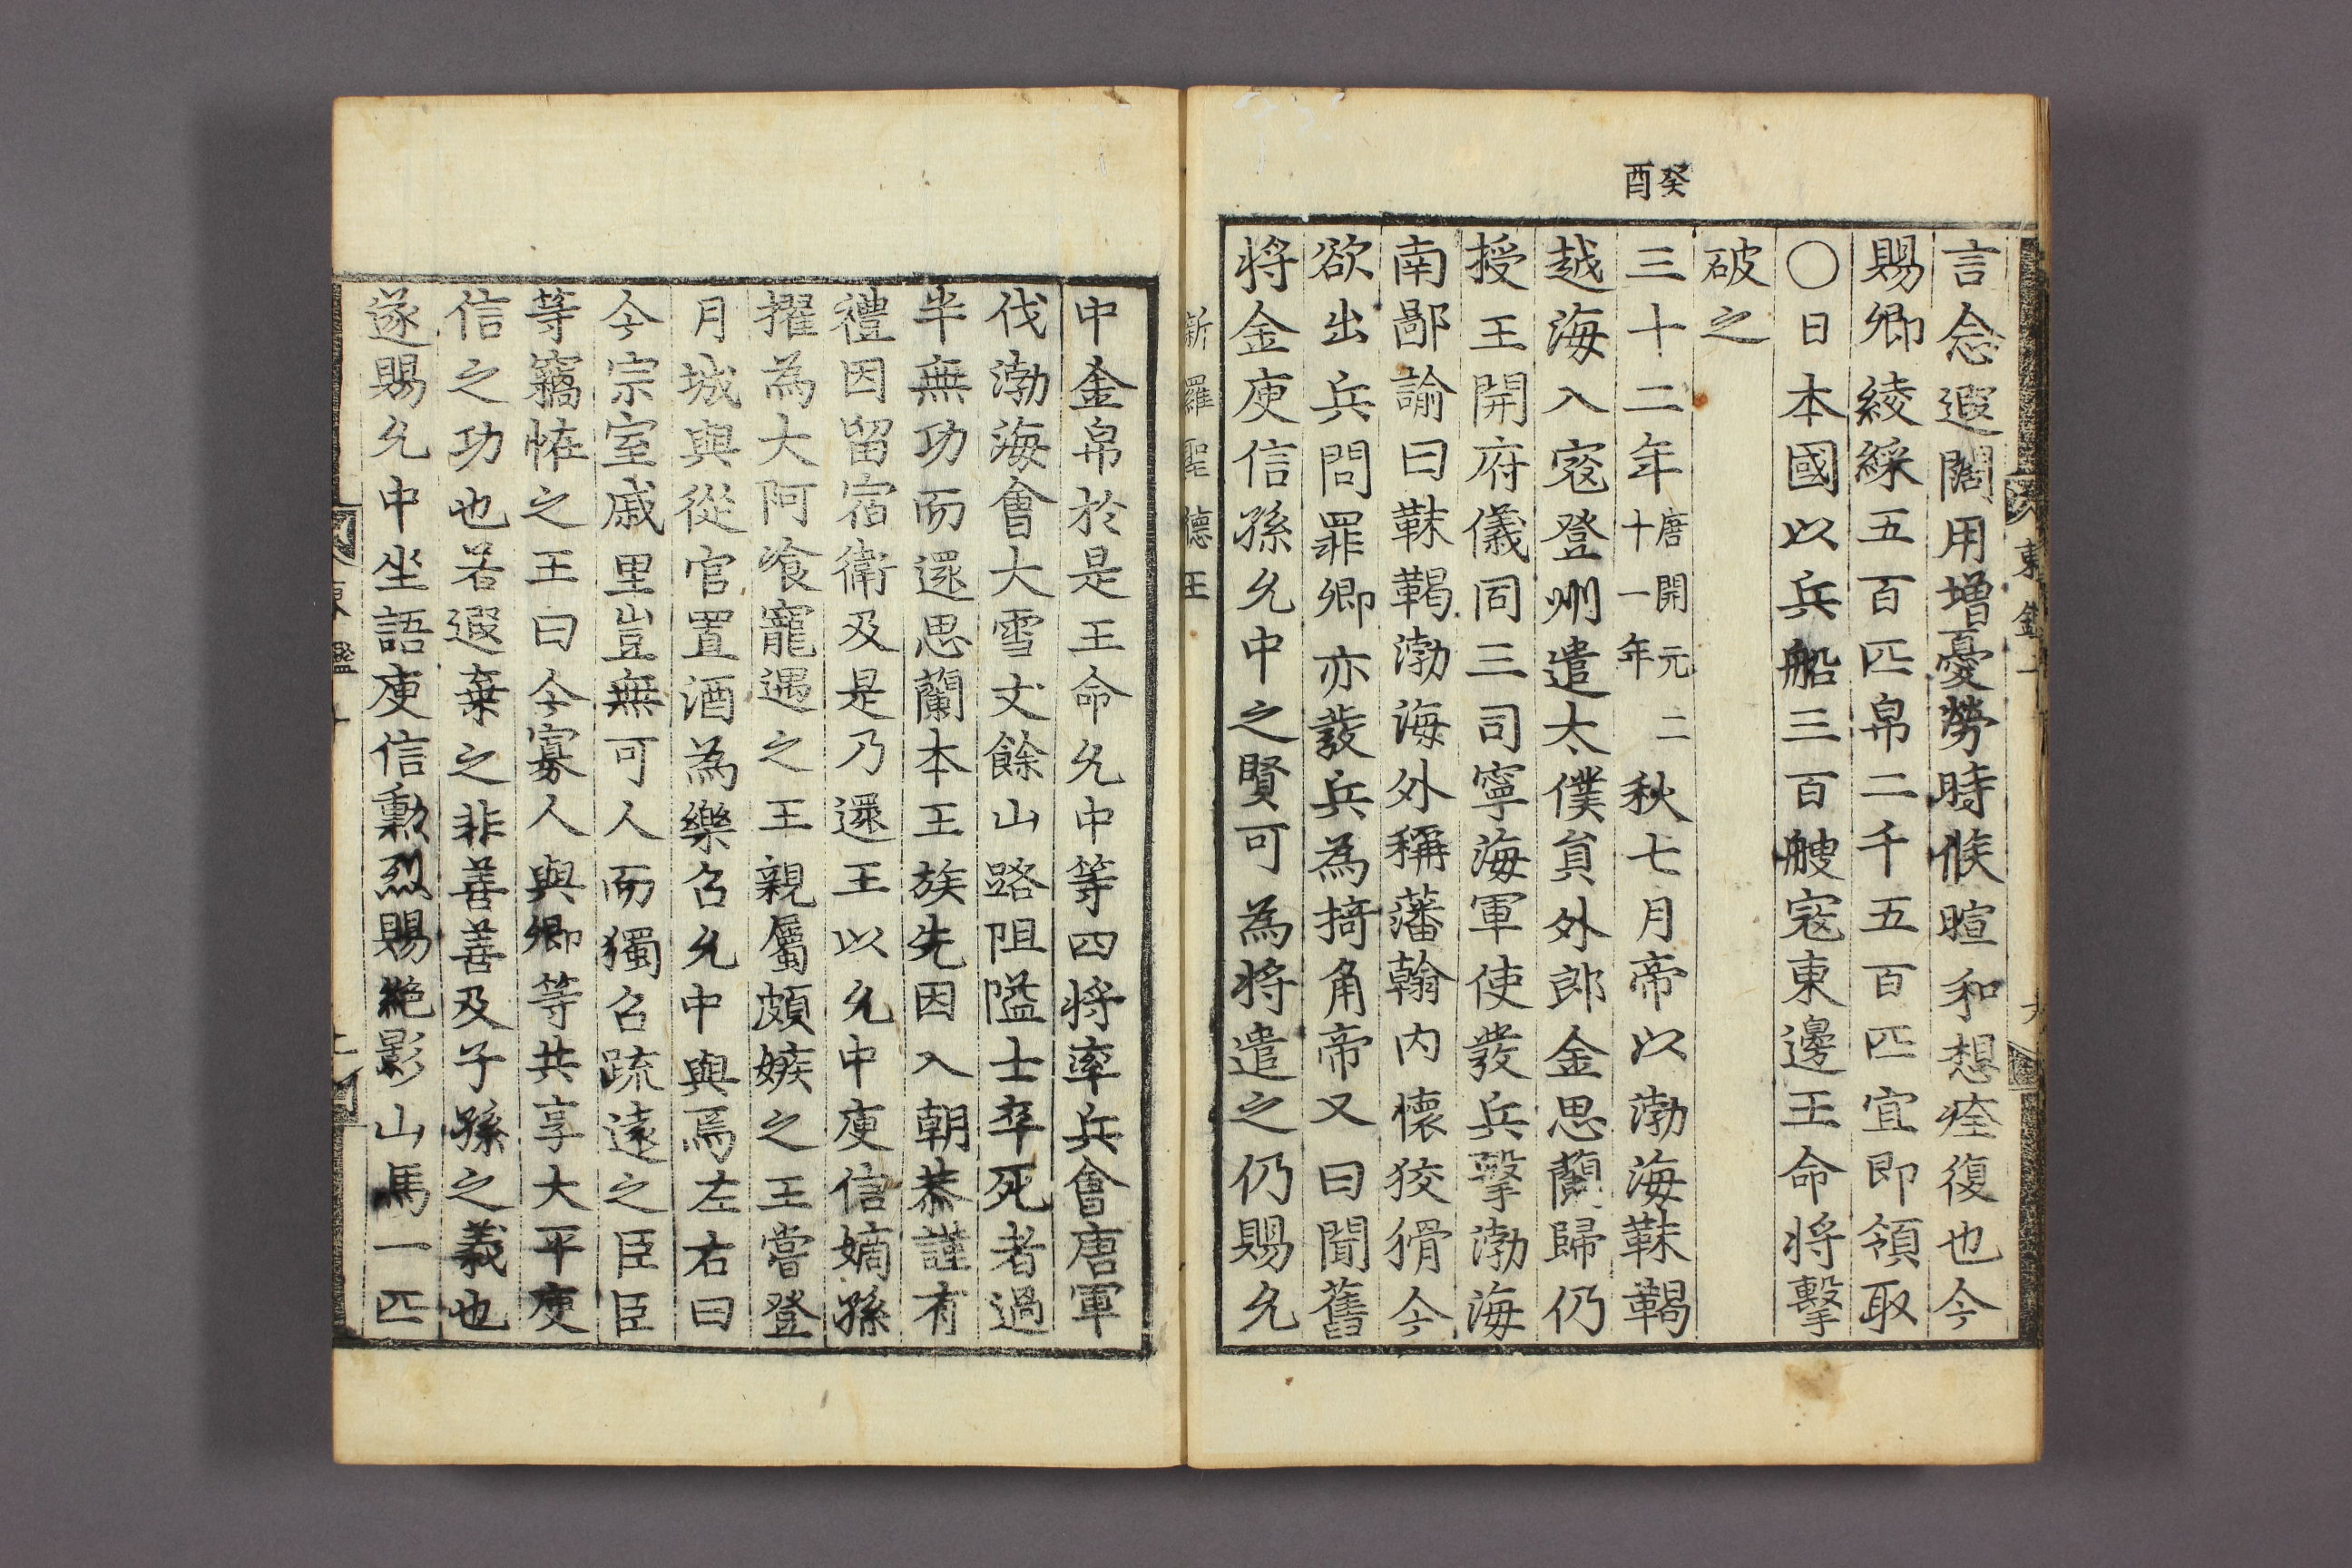 言念遐闊用增憂勞時候暄和想痊復也今
賜卿綾綵五百匹帛二千五百匹宜即領取
〇日本國以兵船三百艘寇東邊王命将擊
破之
癸酉
三十二年唐開元二十一年秋七月帝以渤海靺鞨
越海入寇登州遣太僕貟外郎金思蘭歸仍
授王開府儀同三司寧海軍使發兵擊渤海
南鄙諭曰靺鞨渤海外稱藩翰内懷狡猾今
欲出兵問罪卿亦發兵為掎角帝又曰聞舊
将金庾信孫允中之賢可為将遣之仍賜允
新羅聖德王
中金帛於是王命允中等四将率兵會唐軍
伐渤海會大雪丈餘山路阻隘士卒死者過
半無功而還思蘭本王族先因入朝恭謹有
禮因留宿衛及是乃還王以允中庾信嫡孫
擢為大阿飡寵遇之王親屬頗嫉之王嘗登
月城與從官置酒為樂召允中與焉左右曰
今宗室戚里豈無可人而獨召疏遠之臣臣
等竊恠之王曰今寡人與卿等共享大平庾
信之功也若遐棄之非善善及子孫之義也
遂賜允中坐語庾信勳烈賜絶影山馬一匹